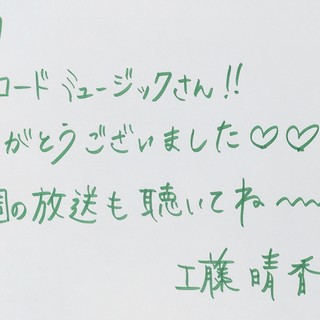 コードミュージックさん!!
がとうございました♡♡
週の放送も聴いてね〜
工藤晴香